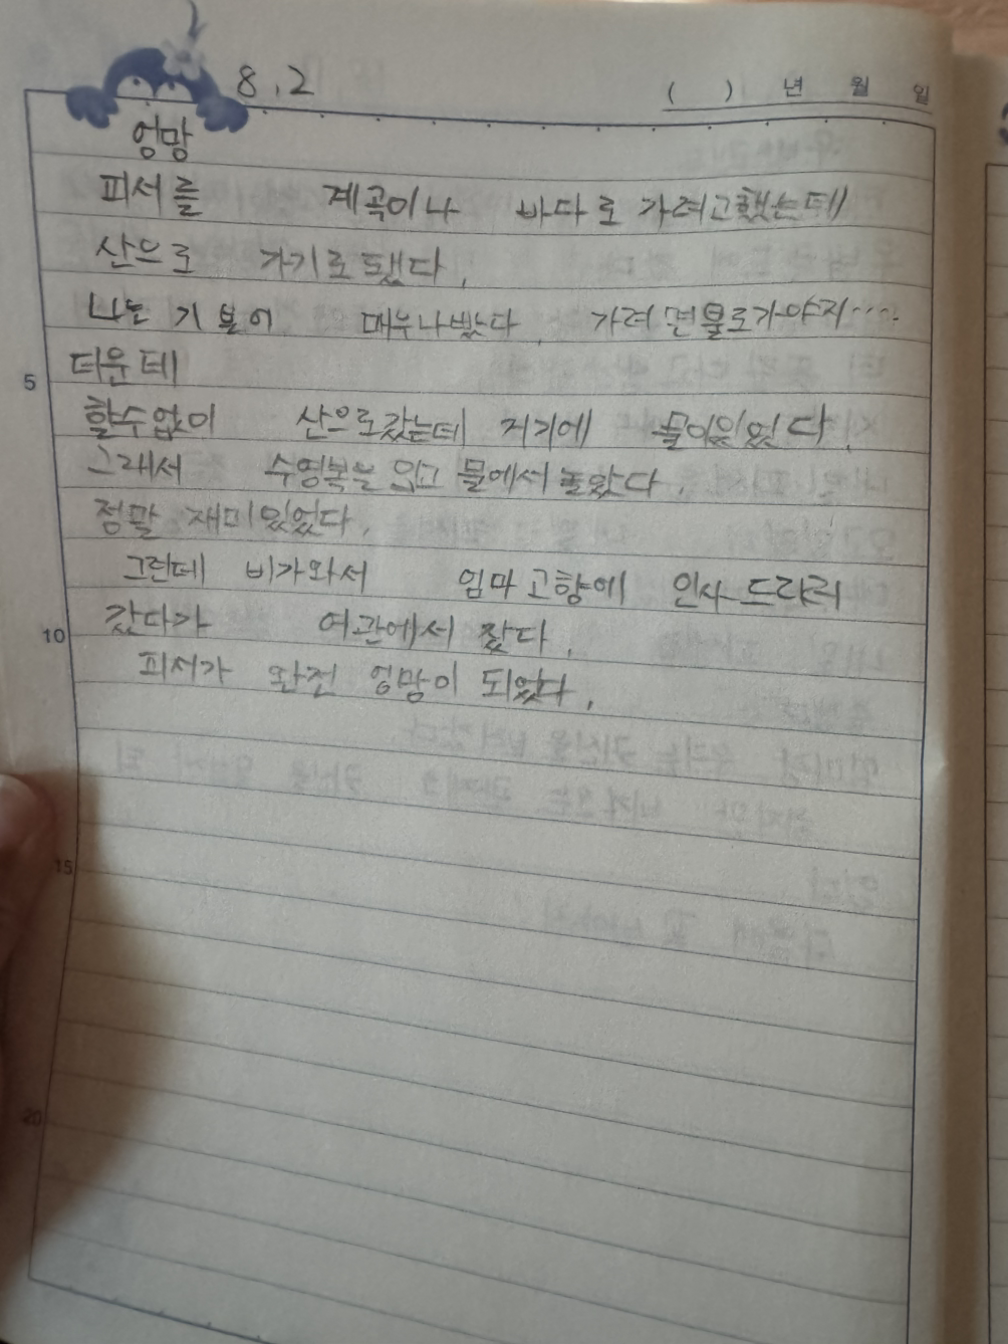 8.2
( ) 년 월 일
엉망
피서를 계곡이나 바다로 가려고했는데
산으로 가기로됐다.
나는 기분이 매우나빴다. 가려면물로가야지....
5 더운데
할수없이 산으로갔는데 거기에 물이있었다.
그래서 수영복을 입고 물에서 놀았다.
정말 재미있었다.
그런데 비가와서 엄마고향에 인사드리러
10 갔다가 여관에서 잤다.
피서가 완전 엉망이 되었다.
15
20